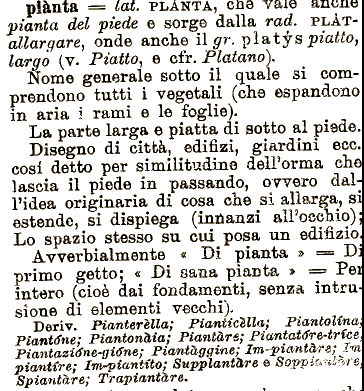 piànta = lat. PLÁNTA, che vale anche
pianta del piede e sorge dalla rad. PLÀT-
allargare, onde anche il gr. platýs piatto,
largo (v. Piatto, e cfr. Platano).
Nome generale sotto il quale si com-
prendono tutti i vegetali (che espandono
in aria i rami e le foglie).
La parte larga e piatta di sotto al piede.
Disegno di città, edifizi, giardini ecc.
così detto per similitudine dell'orma che
lascia il piede in passando, ovvero dal-
l'idea originaria di cosa che si allarga, si
estende, si dispiega (innanzi all'occhio);
Lo spazio stesso su cui posa un edifizio.
Avverbialmente « Di pianta » = Di
primo getto; « Di sana pianta » = Per
intero (cioè dai fondamenti, senza intru-
sione di elementi vecchi).
Deriv. Pianterèlla; Pianticèlla; Piantolína;
Piantóne; Piantonàia; Piantàre; Piantatóre-tríce;
Piantazióne-gióne; Piantàggine; Im-piantàre; Im-
piantíre; Im-piantíto; Supplantàre e Soppiantàre,
Spiantàre; Trapiantàre.